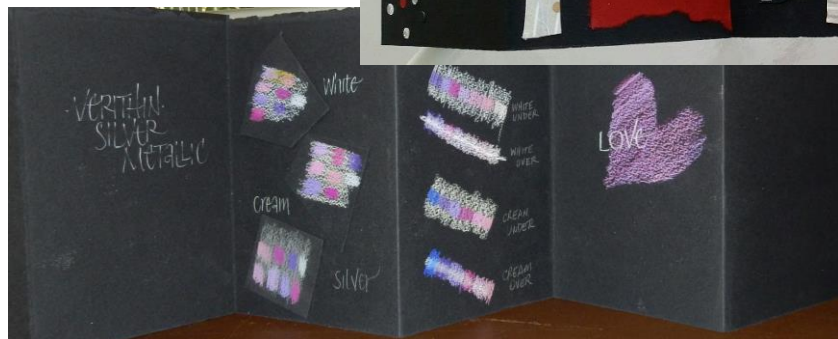 ·VERITHIN·
SILVER
METALLIC
White
Cream
Silver
WHITE
UNDER
WHITE
OVER
CREAM
UNDER
CREAM
OVER
LOVE